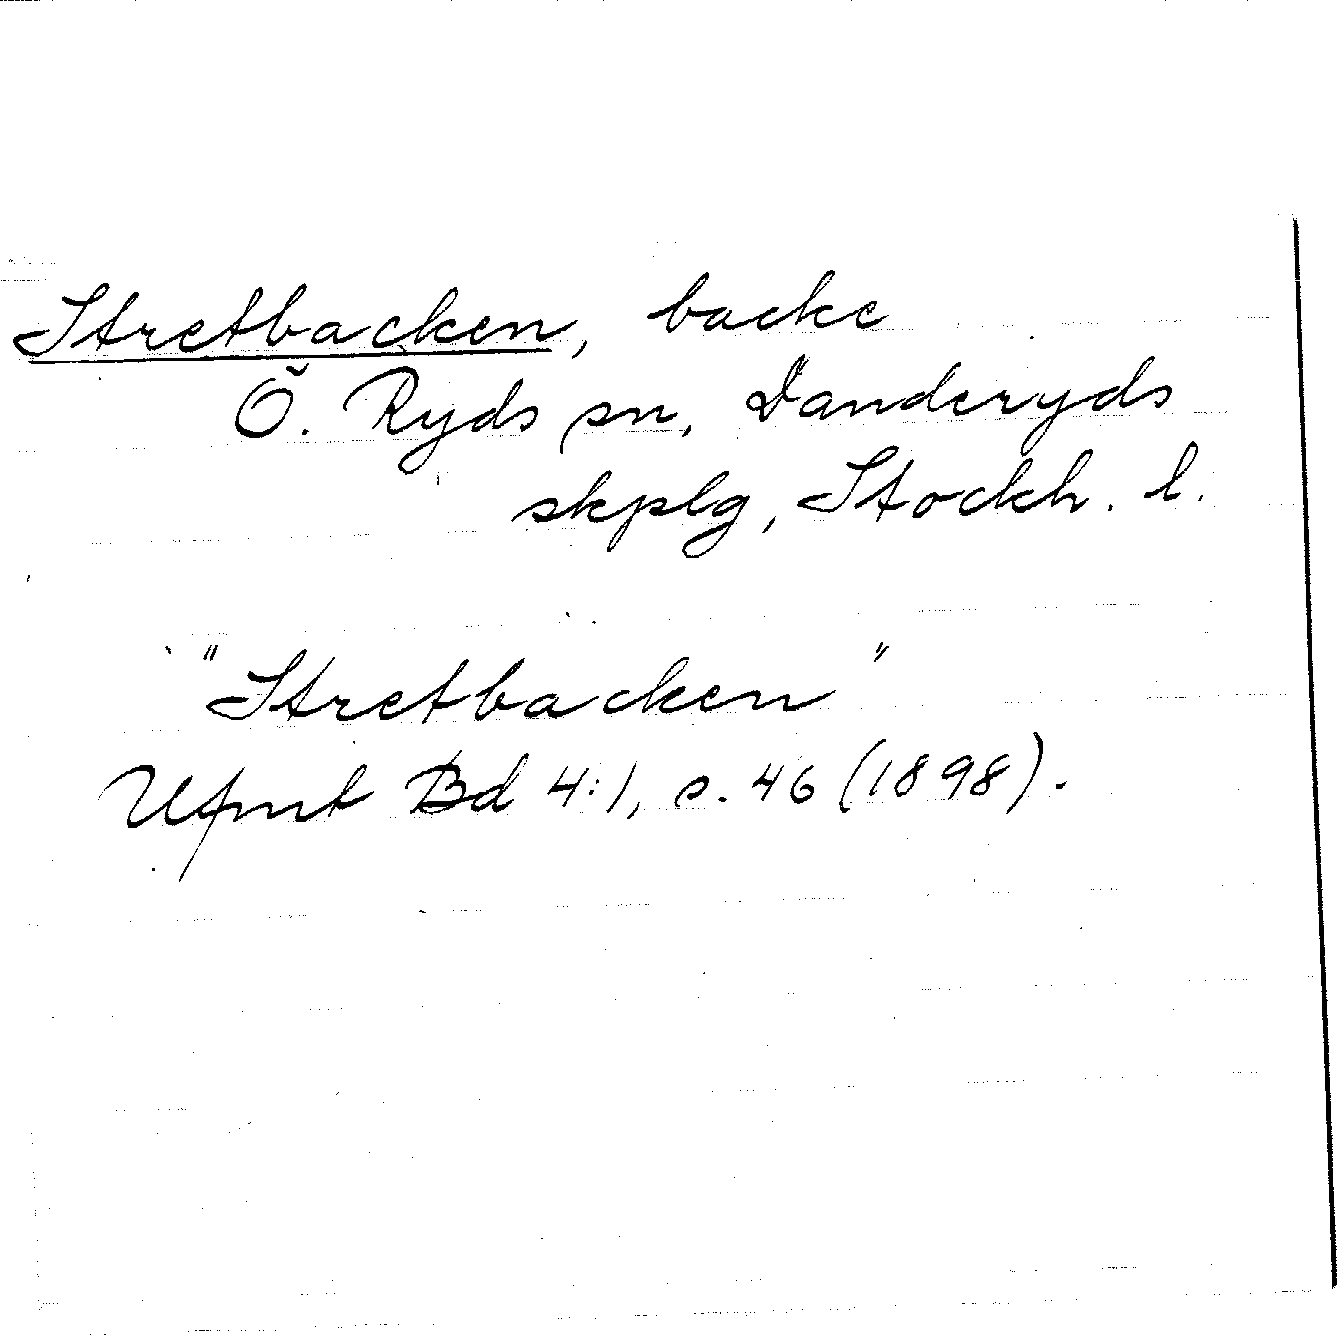 Stretbacken, backe
Ö. Ryds sn, Danderyds
skplg, Stockh. l.
"Stretbacken"
Ufmt Bd 4:1, s. 46 (1898).